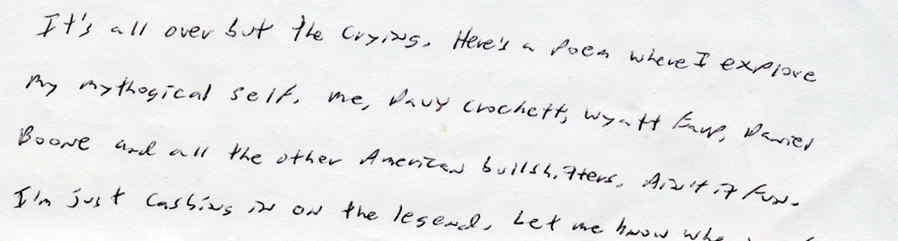 It's all over but the crying. Here's a Poem where I explore
my mythogical self. me, Davy Crochett, Wyatt Earp, Daniel
Boone and all the other American bullshitters. Ain't it fun.
I'm just cashing in on the legend. Let me know